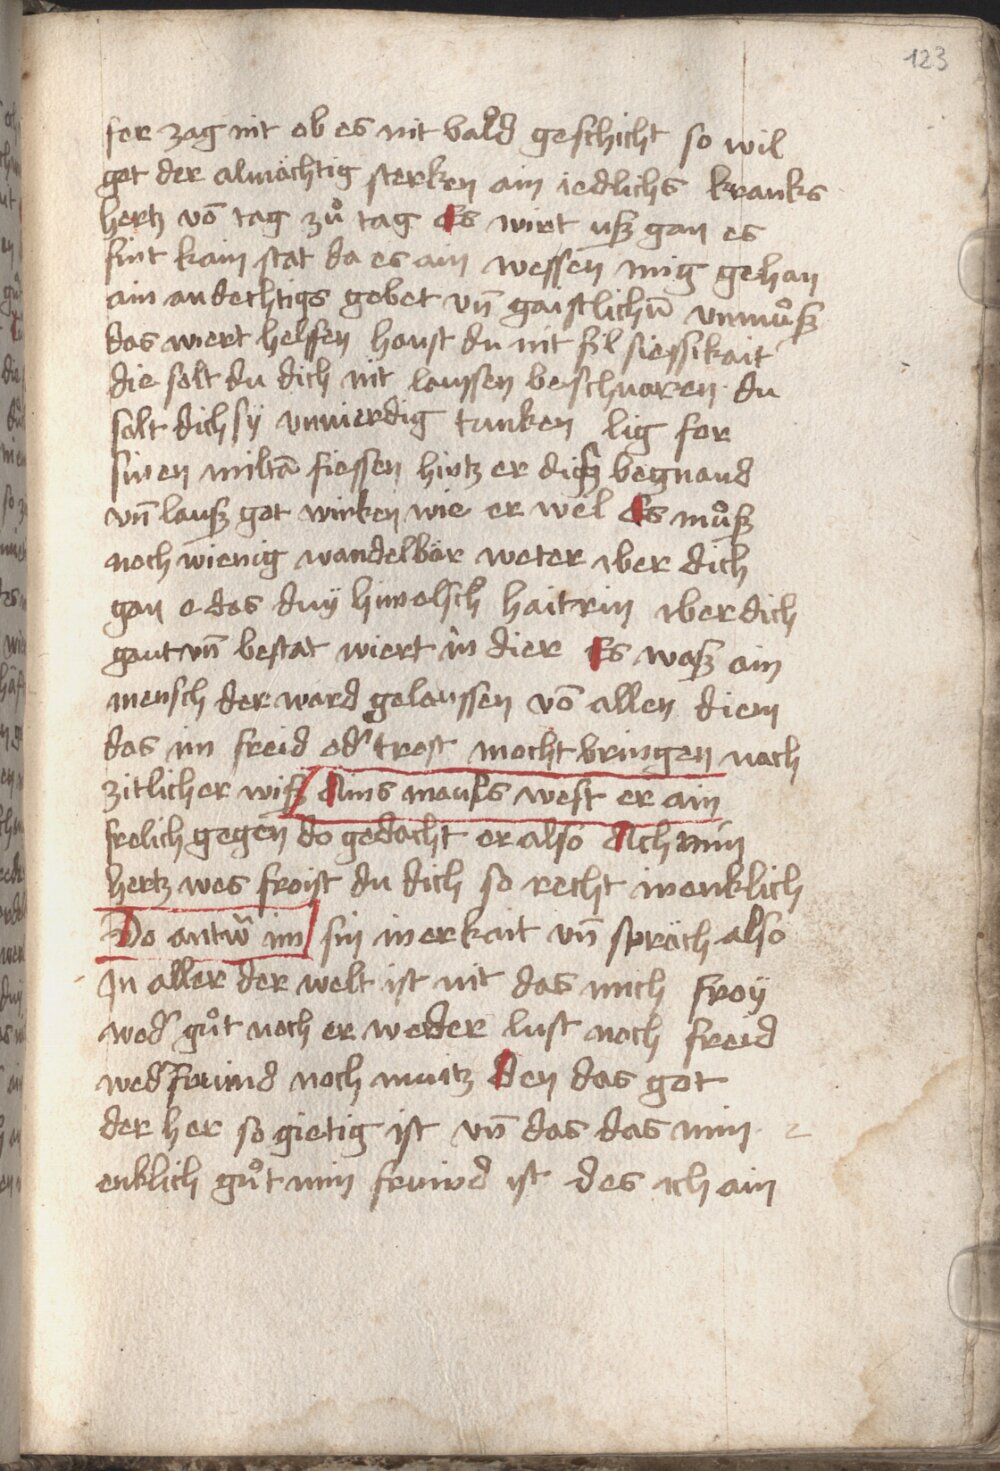 123
fer zag nit ob es nit bald geschicht so wil
got der almächtig sterken ain iedlichs kranks
hertz vō tag zů tag Es wirt usz gan es
sint kain stat da es ain wessen mig gehan
ain andechtigs gebet vn̄ gaistlichū vnmůsz
das wiert helffen haust du nit fil siessikait
die solt du dich nit laussen beschwaren du
solt dich sÿ vnwierdig tunken lig for
sinen miltā fiessen hintz er dich begnaud
vn̄ lausz got wirken wie er wel Es můsz
noch wienig wandelbär weter vber dich
gan e das duÿ himelsch haitrin vber dich
gaut vn̄ bestat wiert in dier Es wasz ain
mensch der ward gelaussen vō allen diem
das im freid od' trost mocht bringen nach
zitlicher wisz Ains mauls west er ain
frelich gegen do gedacht er also Ach min
hertz wes froist du dich so recht inenklich
Do antw̄ im sin inerkait vn̄ spräch also
In aller der welt ist nit das mich froÿ
wed' gůt noch er weder lust noch freid
wed' fruind noch nuitz Den das got
der her so gietig ist vn̄ das das min
enklich gůt min fruind ist des ich ain